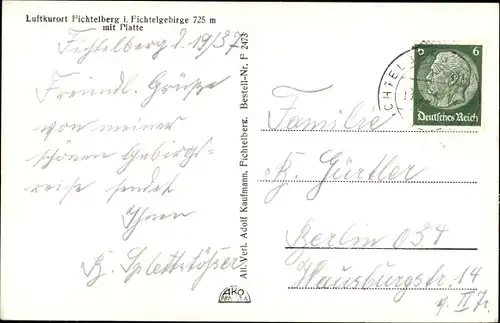 Luftkurort Fichtelberg i. Fichtelgebirge 725 m
mit Platte
Fichtelberg d. 19/37
Freundl. Grüße
von meiner
schönen Gebirgs-
reise sendet
Ihnen
K. Splettstößer
All.-Verl. Adolf Kaufmann, Fichtelberg. Bestell-Nr. P 2473
Ako
CHTEL
6 6
Deutsches Reich
Familie
K. Gürtler
Berlin O 34
Hausburgstr. 14
v. II Tr.